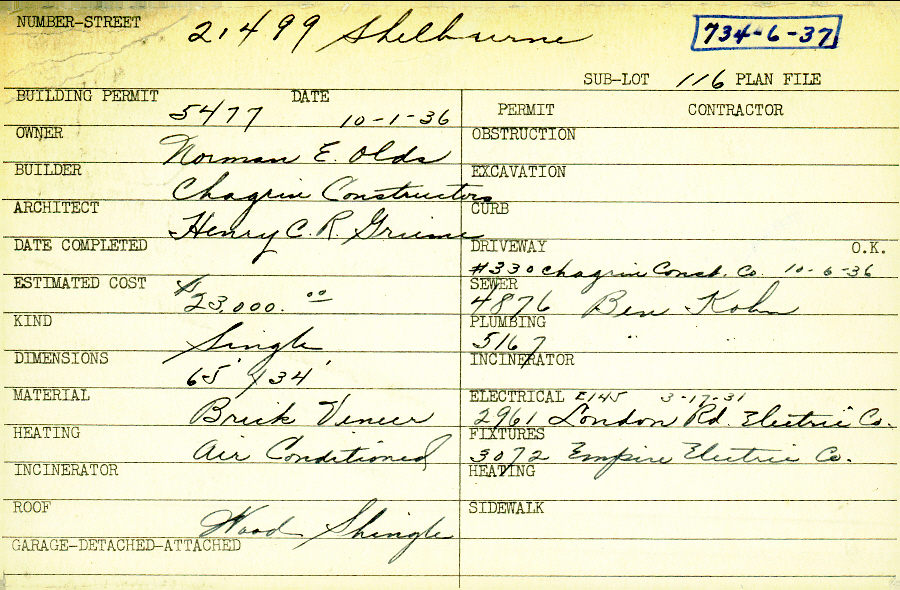 NUMBER-STREET 21499 Shelburne 734-6-37
SUB-LOT 116 PLAN FILE
BUILDING PERMIT 5477 DATE 10-1-36
PERMIT CONTRACTOR
OWNER Norman E. Olds
OBSTRUCTION
BUILDER Chagrin Constructors
EXCAVATION
ARCHITECT Henry C. R. Grieme
CURB
DATE COMPLETED
DRIVEWAY #330 Chagrin Const. Co. 10-6-36 O.K.
ESTIMATED COST $23,000.00
SEWER 4876 Ben Kohn
KIND Single
PLUMBING 5167 " "
DIMENSIONS 65' x 34'
INCINERATOR
MATERIAL Brick Veneer
ELECTRICAL E145 3-17-31
2961 London Rd. Electric Co.
HEATING Air Conditioned
FIXTURES 3072 Empire Electric Co.
INCINERATOR
HEATING
ROOF Wood Shingle
SIDEWALK
GARAGE-DETACHED-ATTACHED